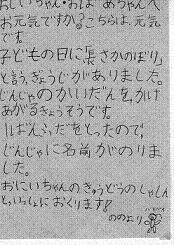 おじいちゃん・おばあちゃんへ
お元気ですか?こちらは、元気
です。
子どもの日に「長さかのぼり」
と言う、ぎょうじがありました。
じんじゃのかいだんを、かけ
あがるきょうそうです。
1ばんふだをとったので、
じんじゃに名前がのりま
した。
おにいちゃんのきゅうどうのしゃしん
といっしょにおくります!
ののより